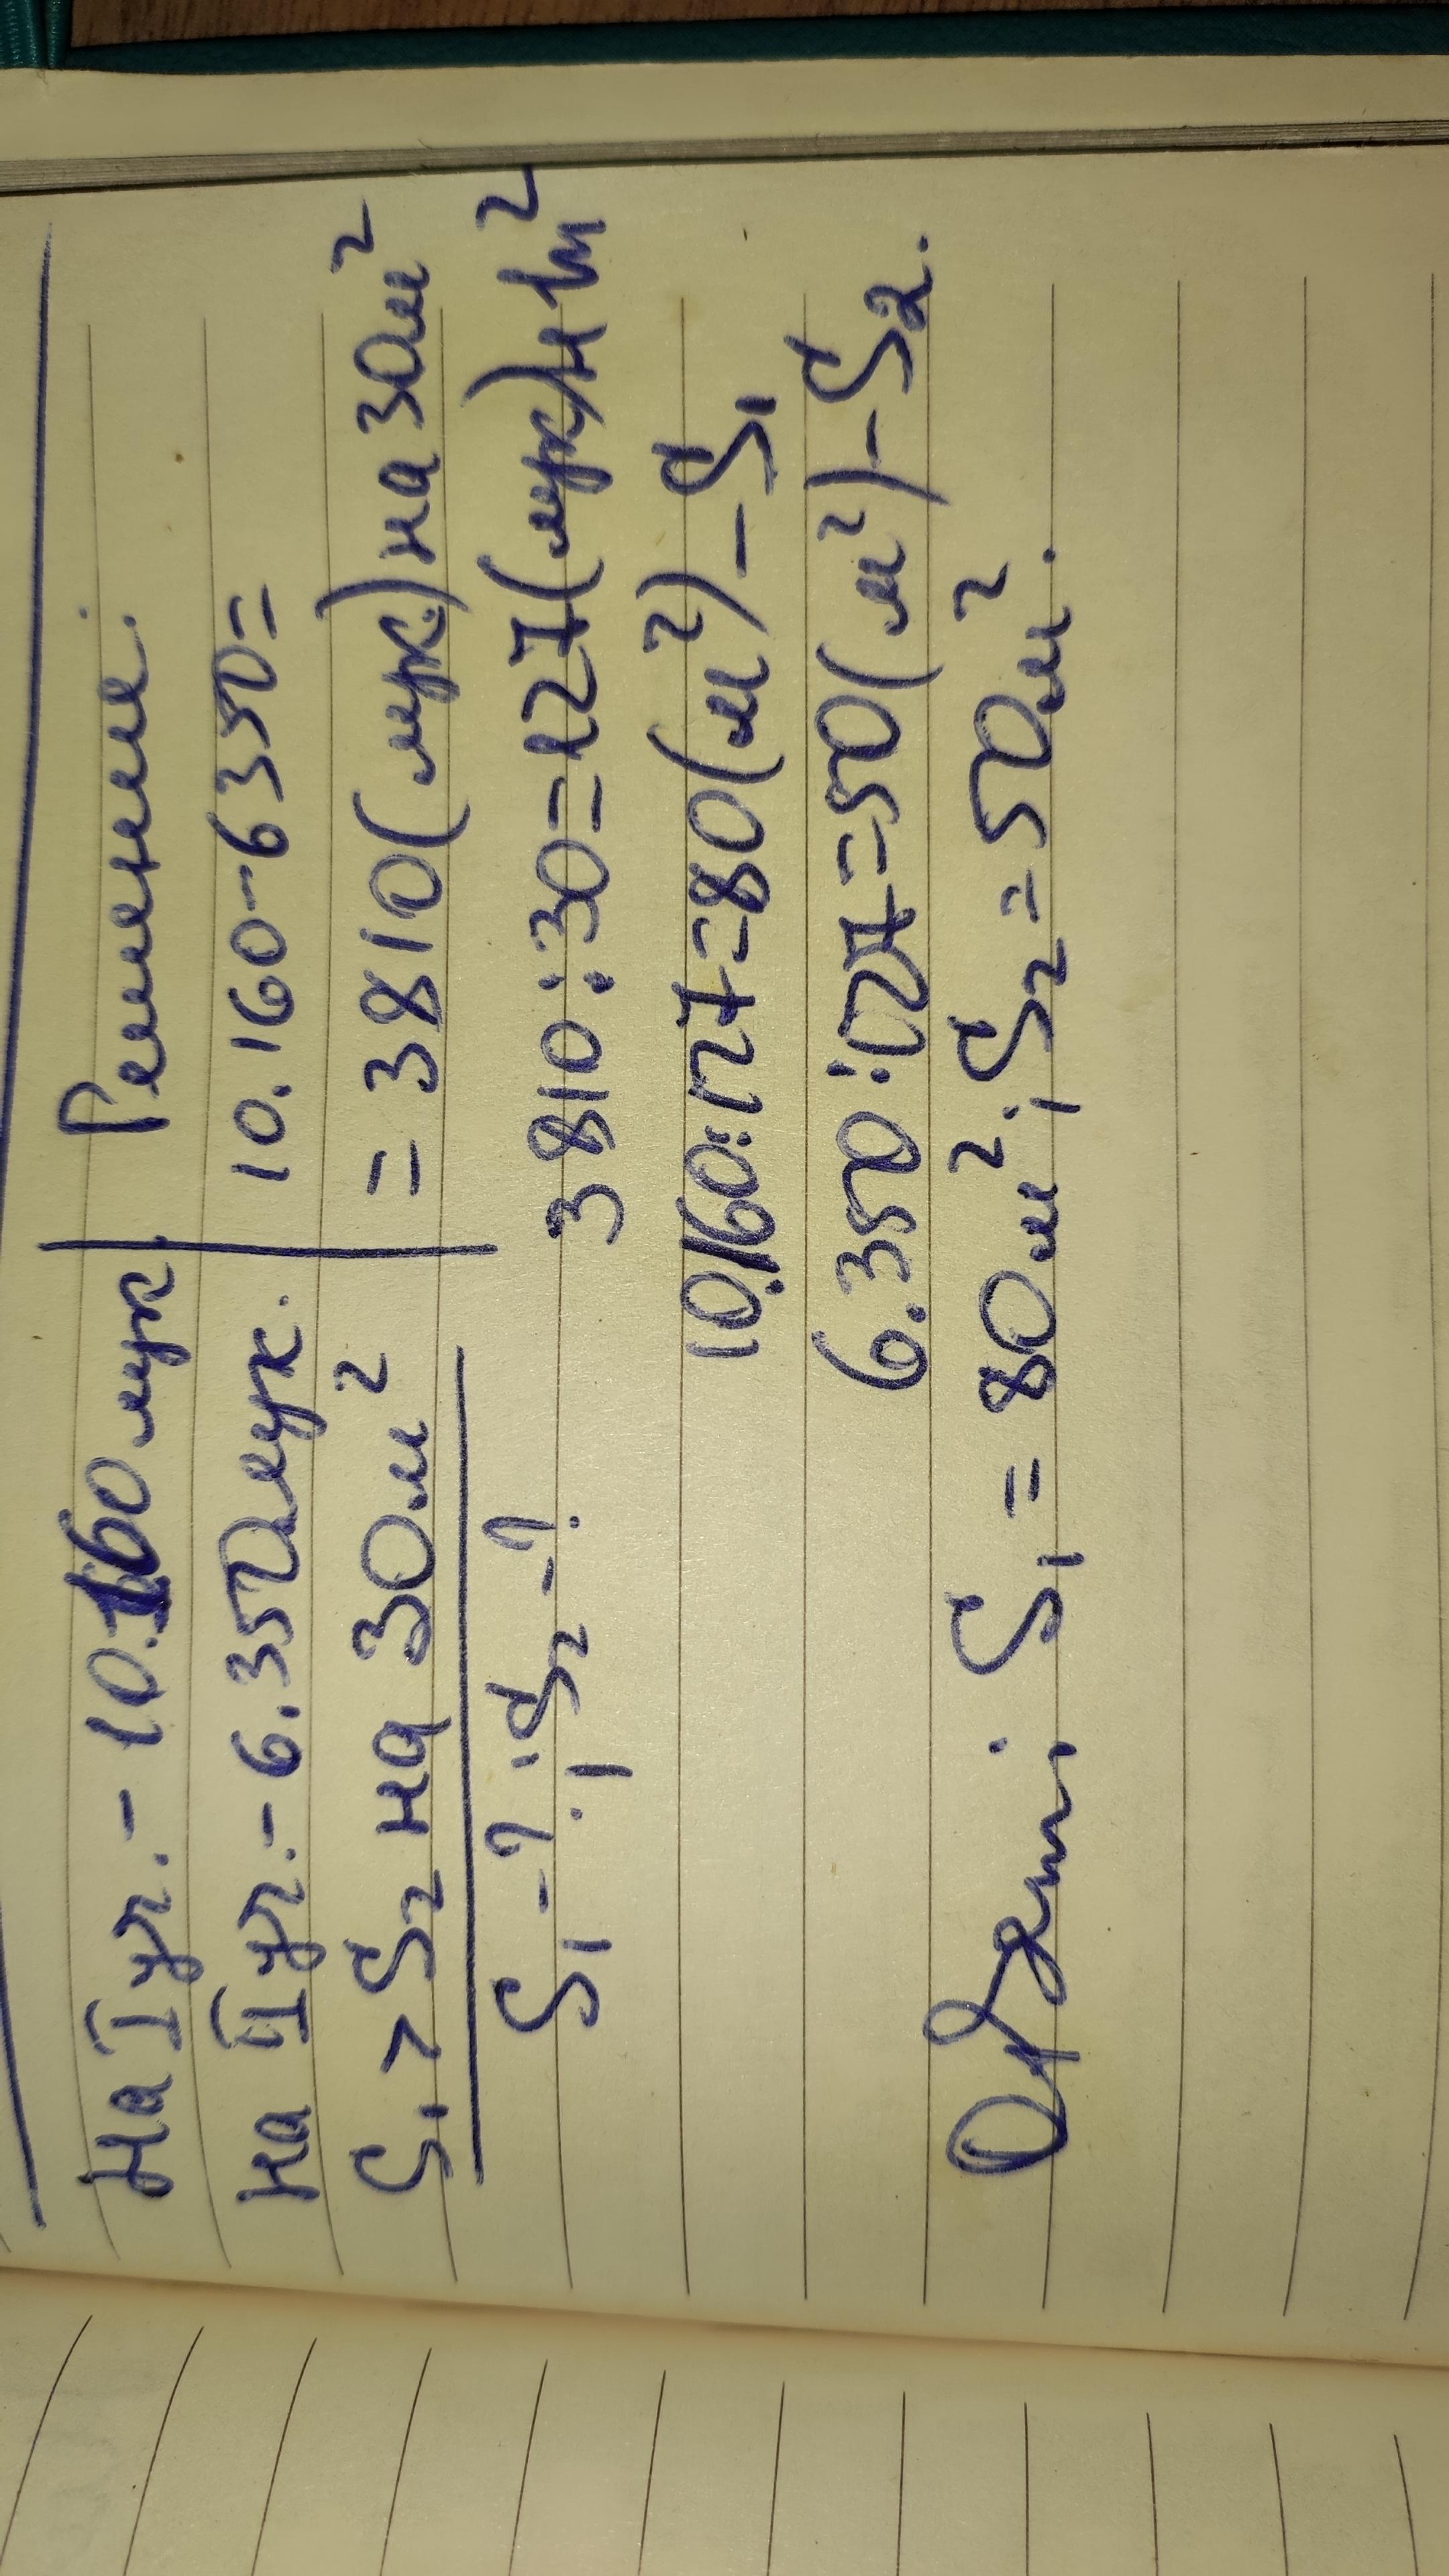 На I уч. - 10.160 лук
На II уч. - 6.350 лук.
S₁ > S₂ на 30 м²
S₁ - ?; S₂ - ?
Решение.
10.160-6350=
= 3810(лук.) на 30м²
3810:30=127(лук) н 1м²
10.160:127=80(м²)-S₁
6.350:127=50(м²)-S₂.
Ответ: S₁ = 80м²; S₂ = 50м².